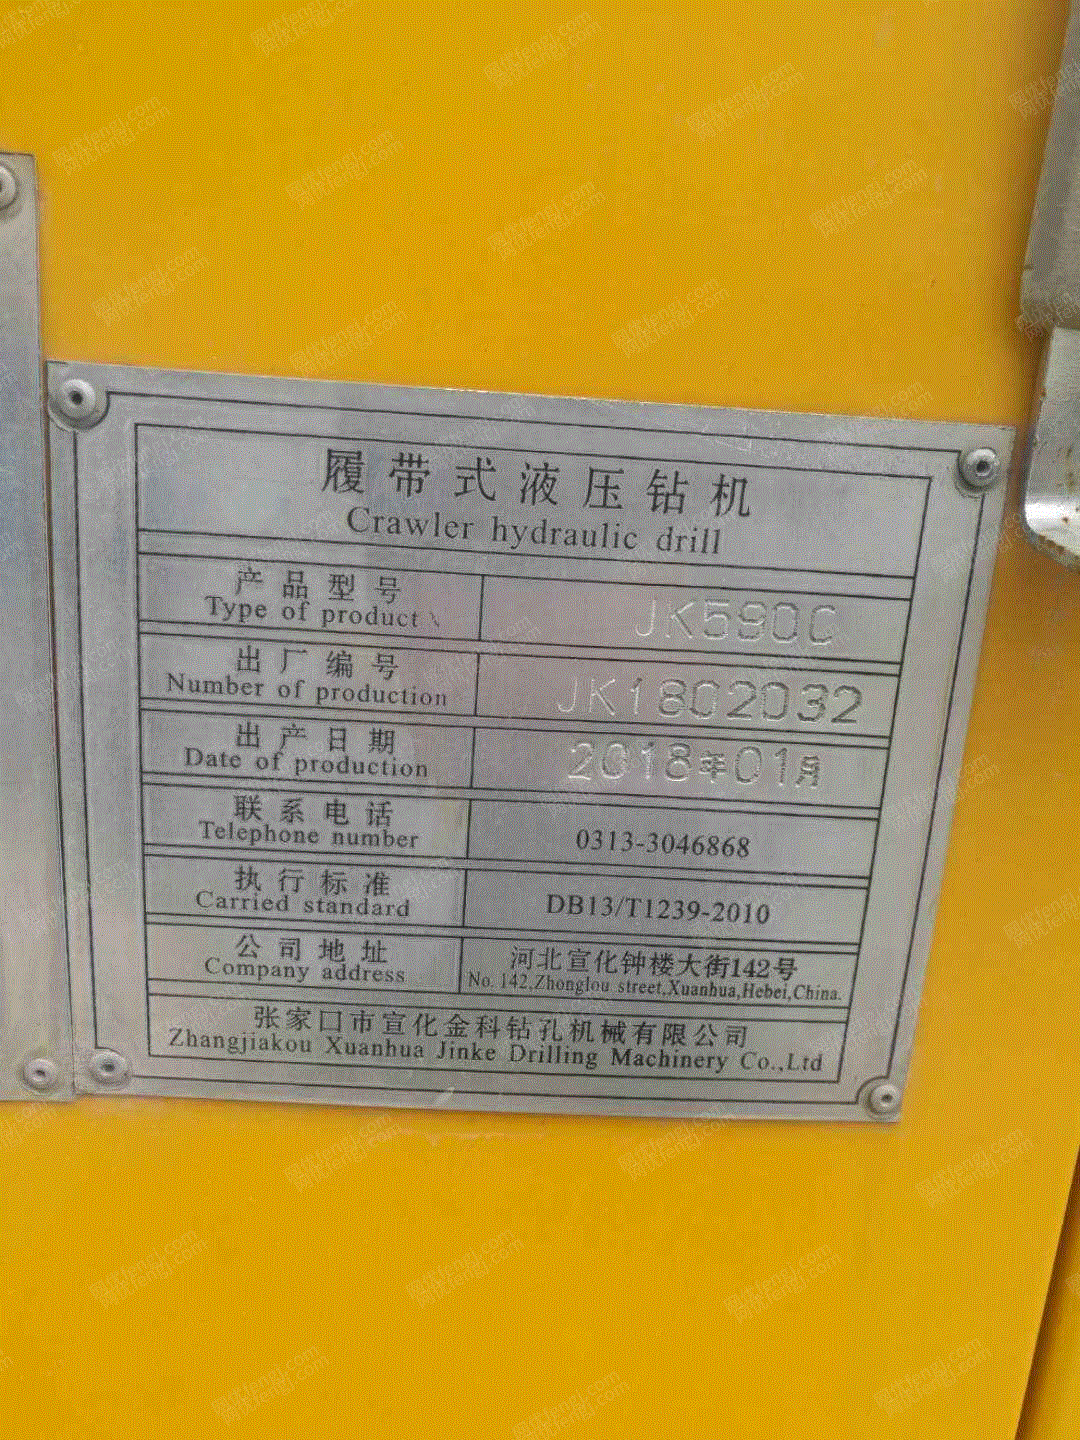 履带式液压钻机
Crawler hydraulic drill
产品型号
Type of product
JK590C
出厂编号
Number of production
JK1802032
出产日期
Date of production
2018年01月
联系电话
Telephone number
0313-3046868
执行标准
Carried standard
DB13/T1239-2010
公司地址
Company address
河北宣化钟楼大街142号
No.142,Zhonglou street,Xuanhua,Hebei,China.
张家口市宣化金科钻孔机械有限公司
Zhangjiakou Xuanhua Jinke Drilling Machinery Co.,Ltd